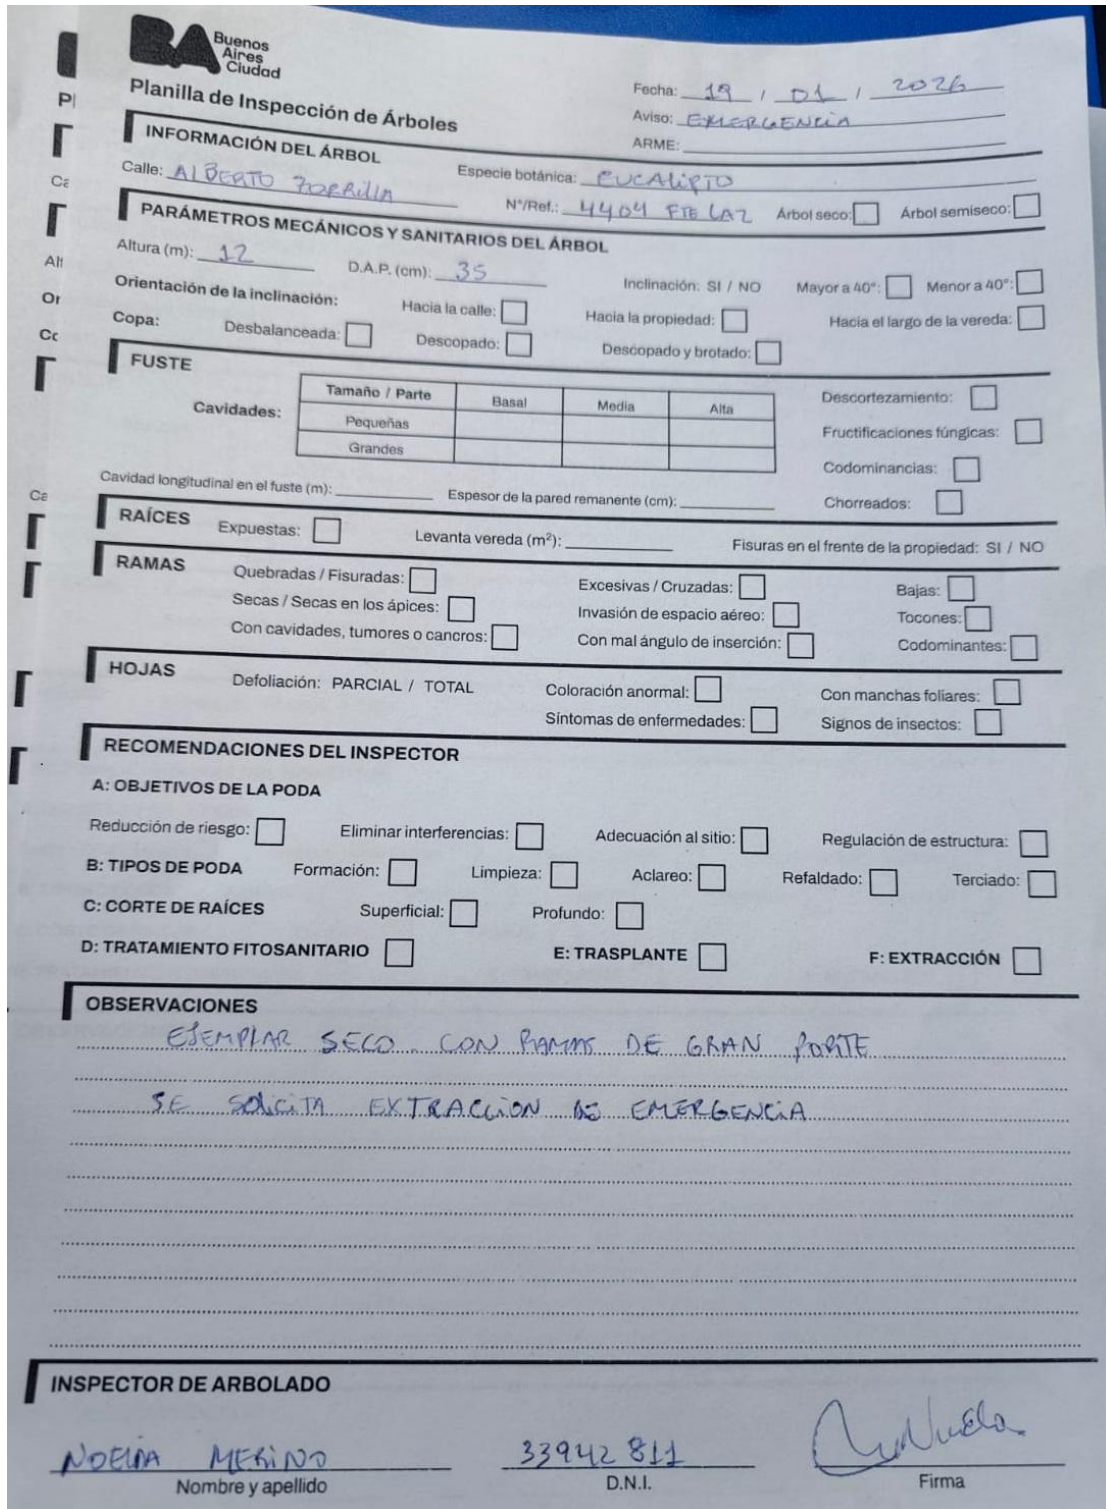 BA Buenos
Aires
Ciudad
Planilla de Inspección de Árboles
Fecha: 19 / 01 / 2026
Aviso: EMERGENCIA
ARME:
INFORMACIÓN DEL ÁRBOL
Calle: ALBERTO ZORRILLA Especie botánica: EUCALIPTO
N°/Ref.: 4404 FTE LAZ Árbol seco: Árbol semiseco:
PARÁMETROS MECÁNICOS Y SANITARIOS DEL ÁRBOL
Altura (m): 12 D.A.P. (cm): 35 Inclinación: SI / NO Mayor a 40°: Menor a 40°:
Orientación de la inclinación: Hacia la calle: Hacia la propiedad: Hacia el largo de la vereda:
Copa: Desbalanceada: Descopado: Descopado y brotado:
FUSTE
Cavidades:
Tamaño / Parte Basal Media Alta
Pequeñas
Grandes
Descortezamiento:
Fructificaciones fúngicas:
Codominancias:
Chorreados:
Cavidad longitudinal en el fuste (m): Espesor de la pared remanente (cm):
RAÍCES Expuestas: Levanta vereda (m²): Fisuras en el frente de la propiedad: SI / NO
RAMAS Quebradas / Fisuradas: Excesivas / Cruzadas: Bajas:
Secas / Secas en los ápices: Invasión de espacio aéreo: Tocones:
Con cavidades, tumores o cancros: Con mal ángulo de inserción: Codominantes:
HOJAS Defoliación: PARCIAL / TOTAL Coloración anormal: Con manchas foliares:
Síntomas de enfermedades: Signos de insectos:
RECOMENDACIONES DEL INSPECTOR
A: OBJETIVOS DE LA PODA
Reducción de riesgo: Eliminar interferencias: Adecuación al sitio: Regulación de estructura:
B: TIPOS DE PODA Formación: Limpieza: Aclareo: Refaldado: Terciado:
C: CORTE DE RAÍCES Superficial: Profundo:
D: TRATAMIENTO FITOSANITARIO E: TRASPLANTE F: EXTRACCIÓN
OBSERVACIONES
EJEMPLAR SECO CON RAMAS DE GRAN PORTE
SE SOLICITA EXTRACCION DE EMERGENCIA
INSPECTOR DE ARBOLADO
NOELIA MERINO 33942811
Nombre y apellido D.N.I. Firma